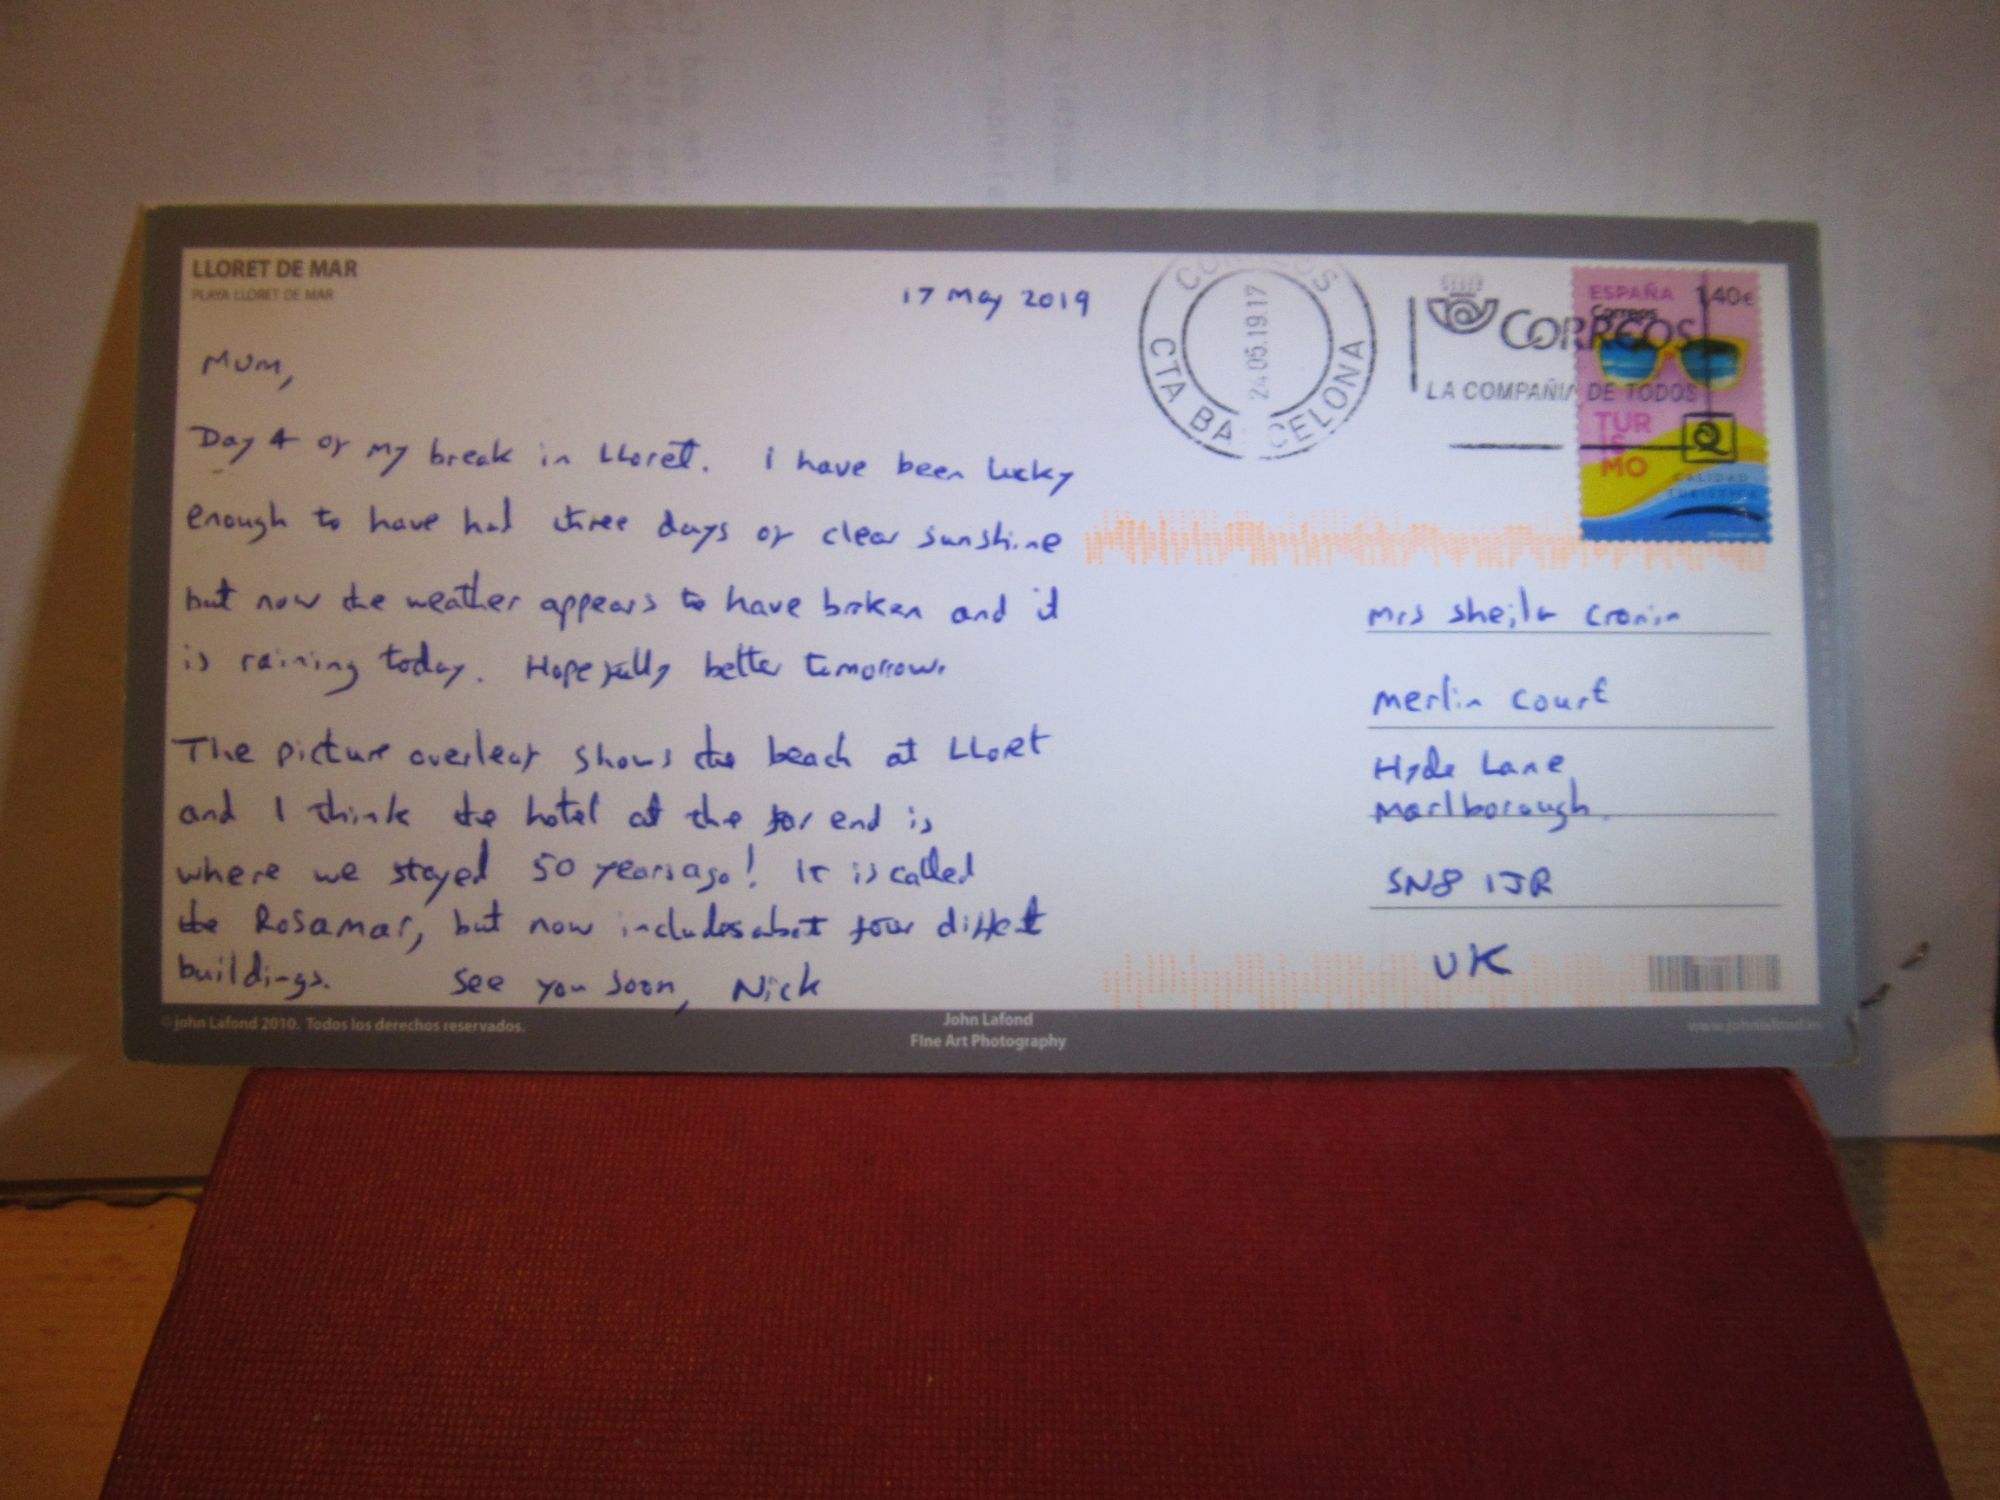 LLORET DE MAR
PLAYA LLORET DE MAR
17 May 2019
Mum,
Day 4 of my break in Lloret. I have been lucky
enough to have had three days of clear sunshine
but now the weather appears to have broken and it
is raining today. Hopefully better tomorrow.
The picture overleaf shows the beach at Lloret
and I think the hotel at the far end is
where we stayed 50 years ago! It is called
the Rosamar, but now includes about four diffet
buildings. See you soon, Nick
CORREOS
24.05.19.17
CTA BARCELONA
CORREOS
LA COMPAÑIA DE TODOS
ESPAÑA 1,40€
Correos
TUR
IS
MO
CALIDAD
TURÍSTICA
Mrs Sheila Cronin
Merlin Court
Hyde Lane
Marlborough
SN8 1JR
UK
© John Lafond 2010. Todos los derechos reservados.
John Lafond
Fine Art Photography